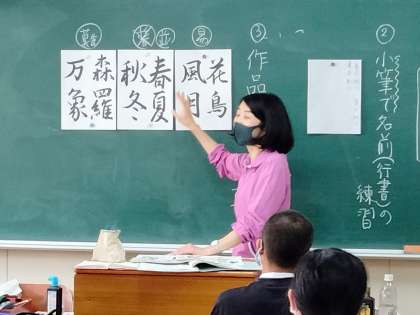 ②
小筆で名前(行書)の
練習
③
作品
易
花鳥
風月
春夏
秋冬
難
森羅
万象